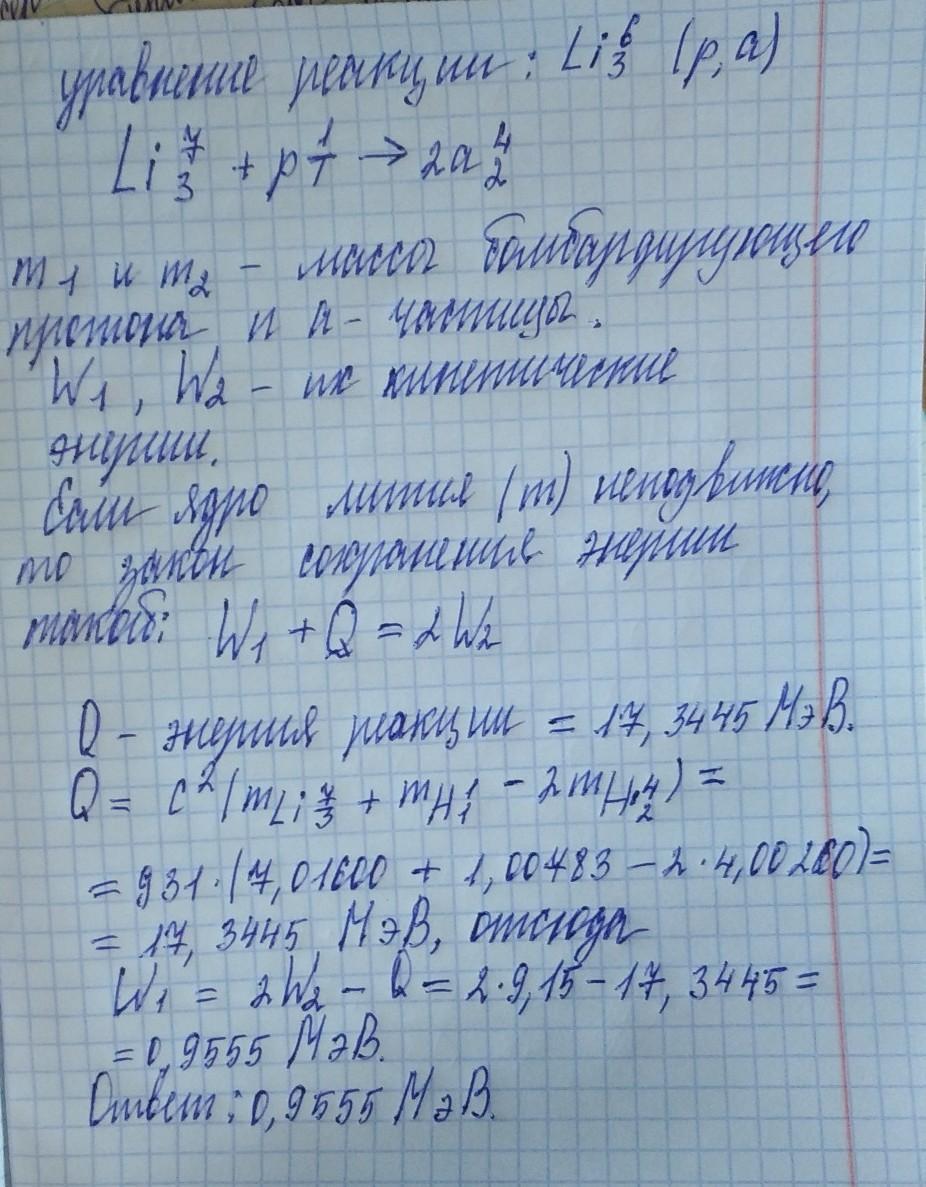 уравнение реакции: Li⁶₃ (p,a)
Li⁷₃ + p¹₁ → 2a⁴₂
m₁ и m₂ - массы бомбардирующего
протона и a - частицы.
W₁, W₂ - их кинетические
энергии.
Если ядро лития (m) неподвижно,
то закон сохранения энергии
такой: W₁ + Q = 2W₂
Q - энергия реакции = 17,3445 МэВ.
Q = c²(m Li⁷₃ + m H¹₁ - 2m He⁴₂) =
= 931·(7,01600 + 1,00783 - 2·4,00260) =
= 17,3445 МэВ, отсюда
W₁ = 2W₂ - Q = 2·9,15 - 17,3445 =
= 0,9555 МэВ.
Ответ: 0,9555 МэВ.